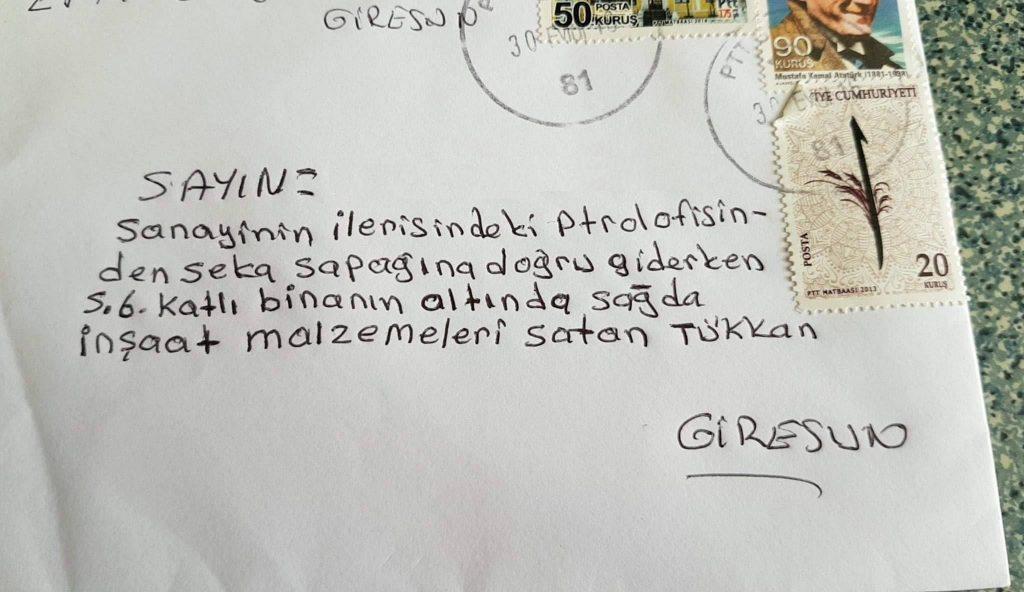 GİRESUN
50 POSTA
KURUŞ
30
81
90
KURUŞ
Mustafa Kemal Atatürk (1881-1938)
PTT
İYE CUMHURİYETİ
81
POSTA
20
KURUŞ
PTT MATBAASI 2013
SAYIN:
Sanayinin ilerisindeki Ptrolofisin-
den seka sapağına doğru giderken
5.6. katlı binanın altında sağda
inşaat malzemeleri satan TÜKKan
GİRESUN